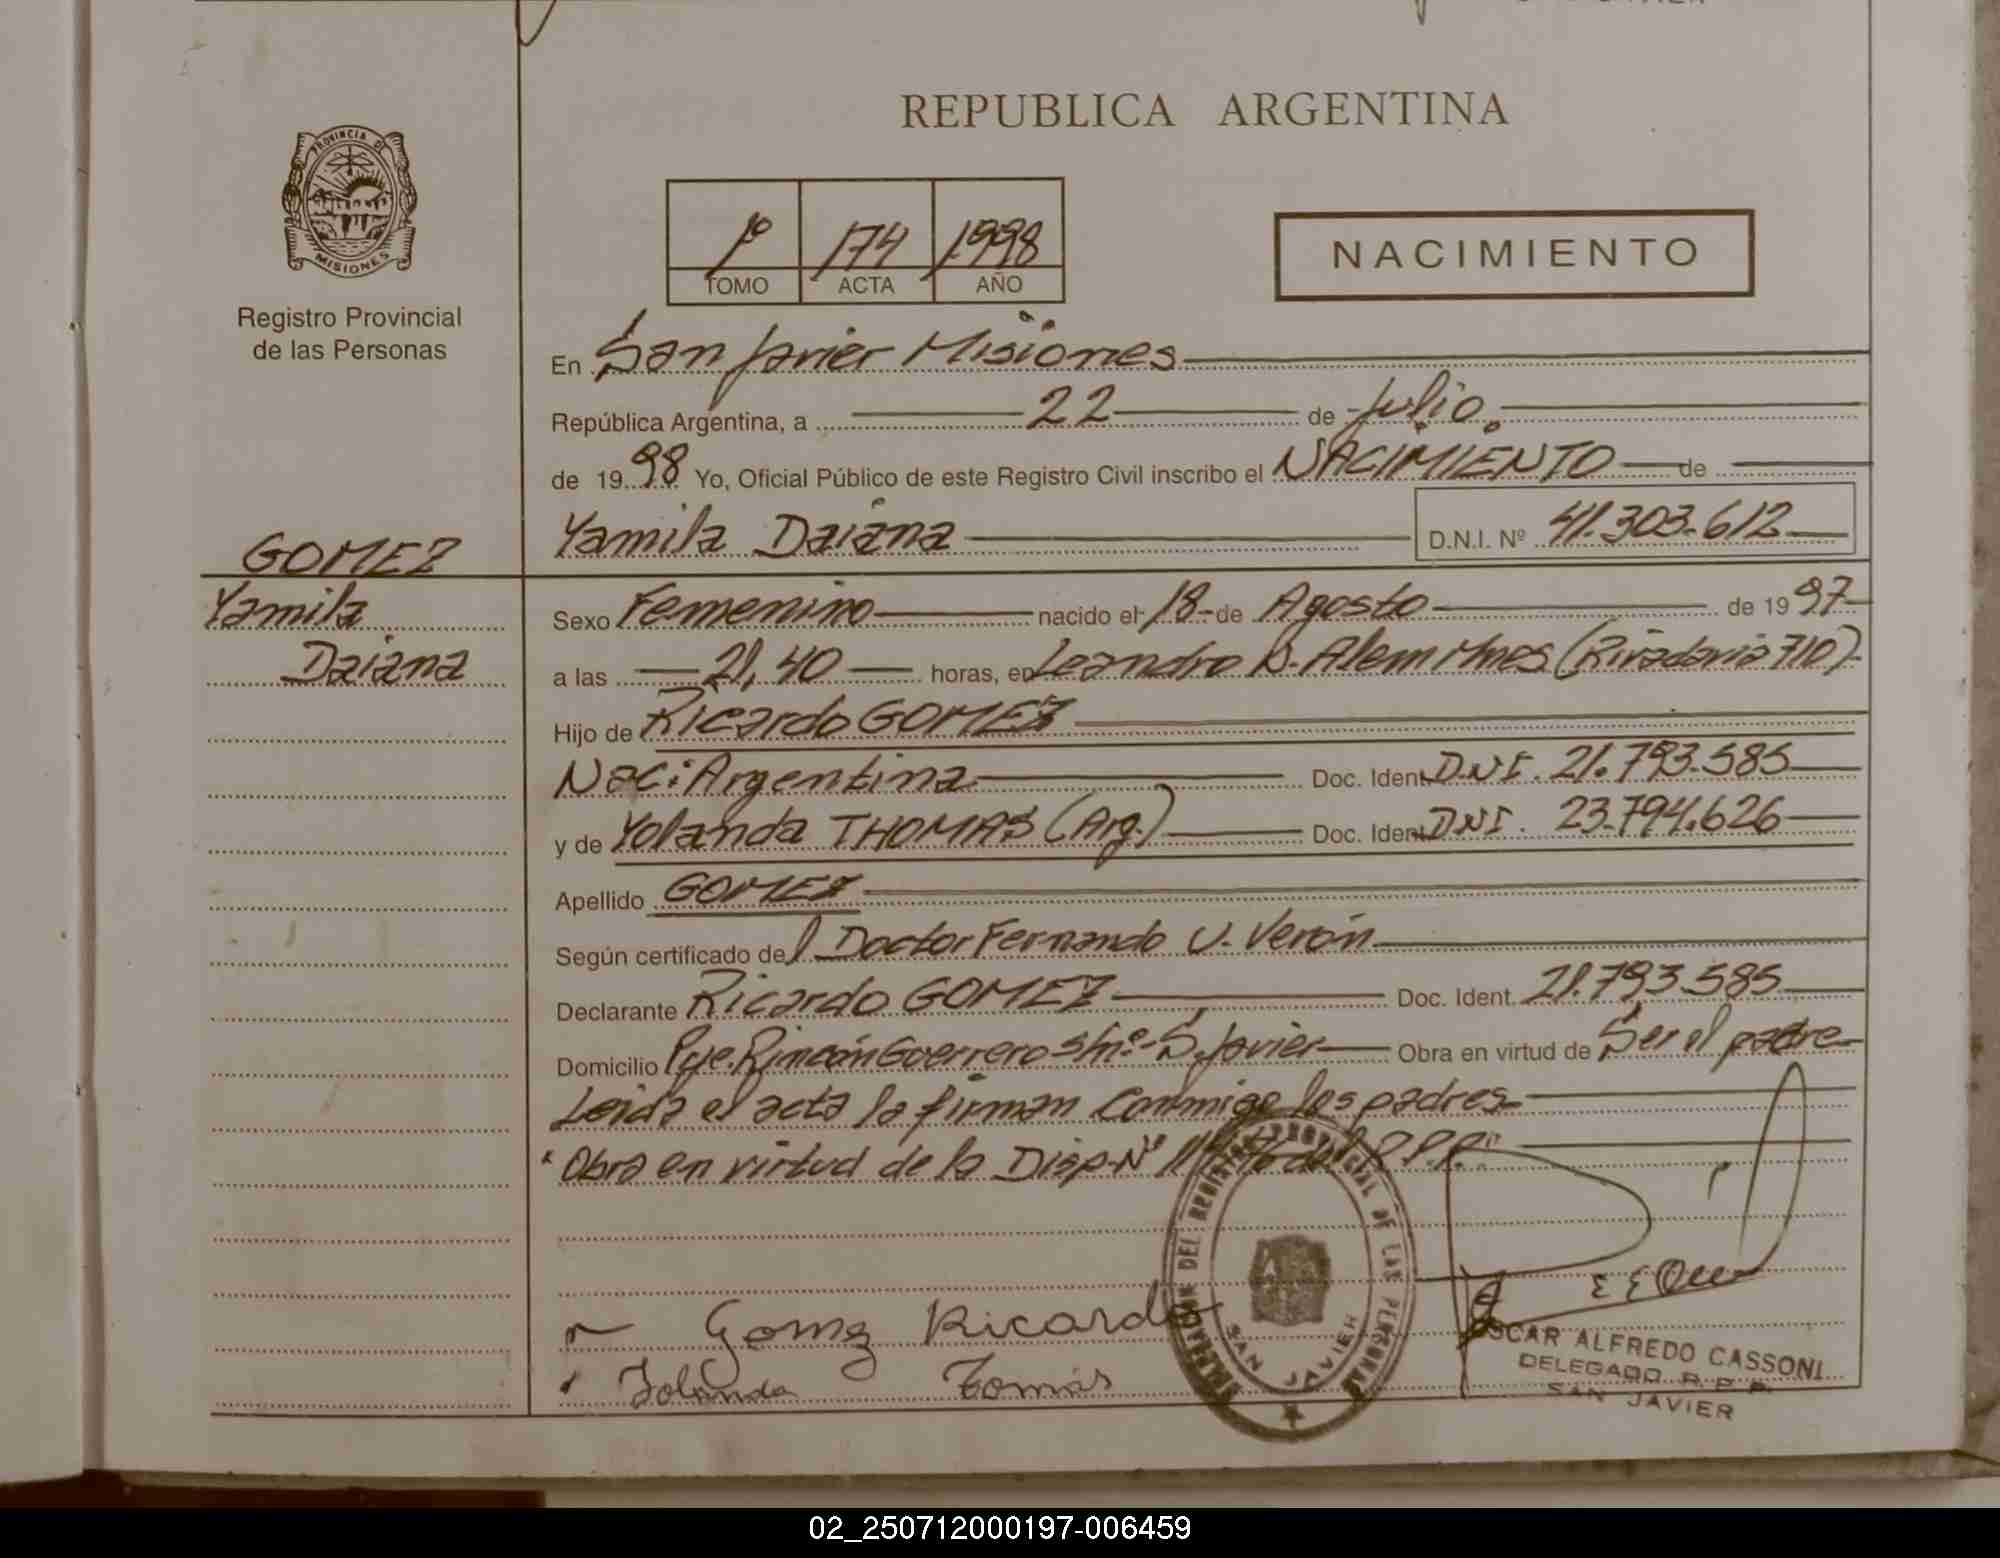 REPUBLICA ARGENTINA
PROVINCIA DE
MISIONES
Registro Provincial
de las Personas
1º 174 1998
TOMO ACTA AÑO
NACIMIENTO
En San Javier Misiones
República Argentina, a 22 de Julio
de 1998 Yo, Oficial Público de este Registro Civil inscribo el NACIMIENTO de
Yamila Daiana D.N.I. Nº 41.303.612
GOMEZ
Yamila
Daiana
Sexo Femenino nacido el 18 de Agosto de 1997
a las 21,40 horas, en Leandro N. Alem Mnes (Rivadavia 710)
Hijo de Ricardo GOMEZ
Naci: Argentina Doc. Ident. D.N.I. 21.793.585
y de Yolanda THOMAS (Arg.) Doc. Ident. DNI. 23.794.626
Apellido GOMEZ
Según certificado del Doctor Fernando U. Verón
Declarante Ricardo GOMEZ Doc. Ident. 21.793.585
Domicilio Pje. Rincón Guerrero s/nº - S. Javier Obra en virtud de Ser el padre
Leida el acta la firman conmigo los padres
"Obra en virtud de la Disp. Nº del R.P.P."
DELEGACION DEL REGISTRO PROVINCIAL DE LAS PERSONAS
SAN JAVIER
Gomez Ricardo
Yolanda Tomás
OSCAR ALFREDO CASSONI
DELEGADO R. P. P.
SAN JAVIER
02_250712000197-006459